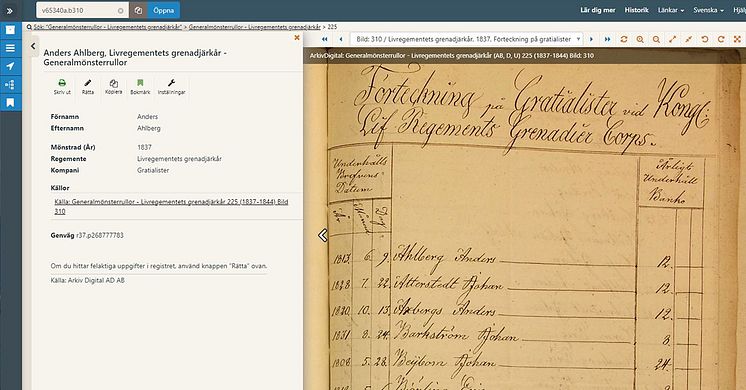 v65340a.b310
Öppna
Lär dig mer Historik Länkar Svenska Hjälp
Sök: "Generalmönsterrullor - Livregementets grenadjärkår" > Generalmönsterrullor - Livregementets grenadjärkår > 225
Bild: 310 / Livregementets grenadjärkår. 1837. Förteckning på gratialister
ArkivDigital: Generalmönsterrullor - Livregementets grenadjärkår (AB, D, U) 225 (1837-1844) Bild: 310
Anders Ahlberg, Livregementets grenadjärkår -
Generalmönsterrullor
Skriv ut Rätta Kopiera Bokmärk Inställningar
Förnamn Anders
Efternamn Ahlberg
Mönstrad (År) 1837
Regemente Livregementets grenadjärkår
Kompani Gratialister
Källor
Källa: Generalmönsterrullor - Livregementets grenadjärkår 225 (1837-1844) Bild
310
Genväg r37.p268777783
Om du hittar felaktiga uppgifter i registret, använd knappen "Rätta" ovan.
Källa: Arkiv Digital AD AB
Förteckning på Gratialister vid Kongl:
Lif Regements Grenadier Corps.
Underhålls
Brefvens
Datum
Årligt
Underhåll
Banko
År Månad Dag
6. 9. Ahlberg Anders 12.
7. 22. Atterstedt Johan 12.
10. 13. Axbergs Anders 12.
1831 8. 24. Barkström Johan 8.
1808 5. 28. Beijbom Johan 24.